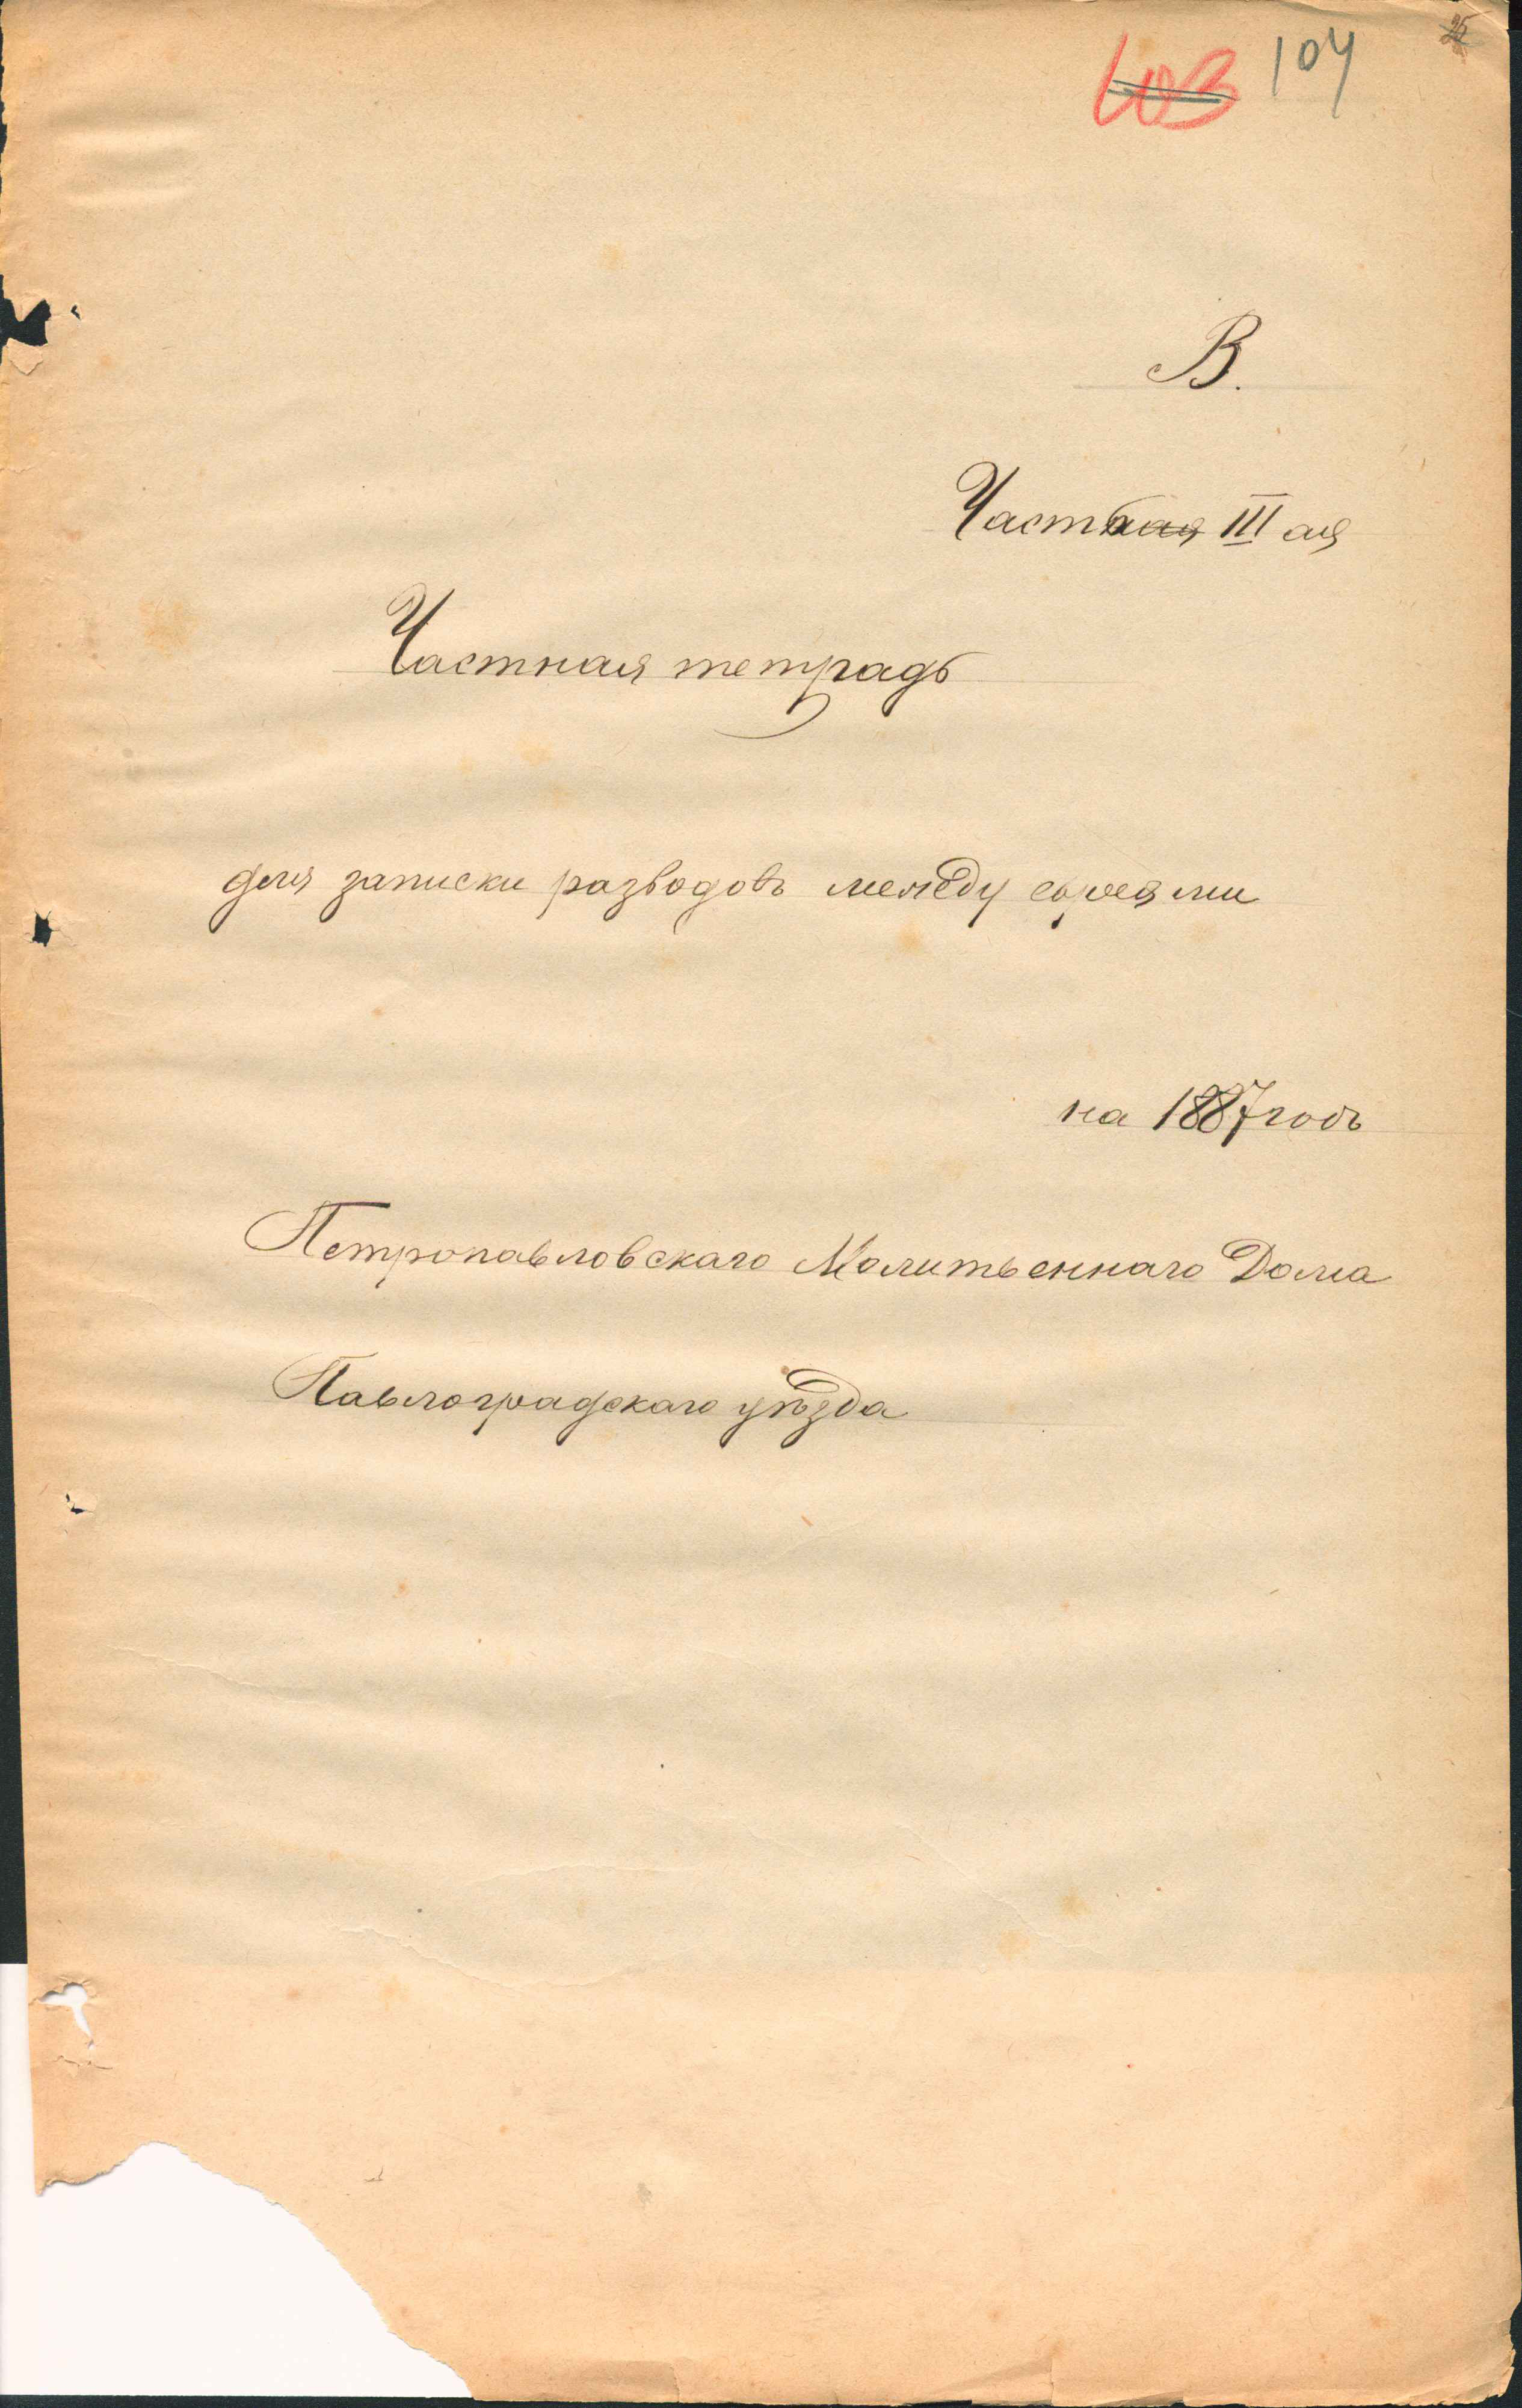 103 104
В.
Часть III ая
Частная тетрадь
для записки разводовъ между евреями
на 1887 годъ
Петропавловскаго Молитвеннаго Дома
Павлоградскаго уѣзда